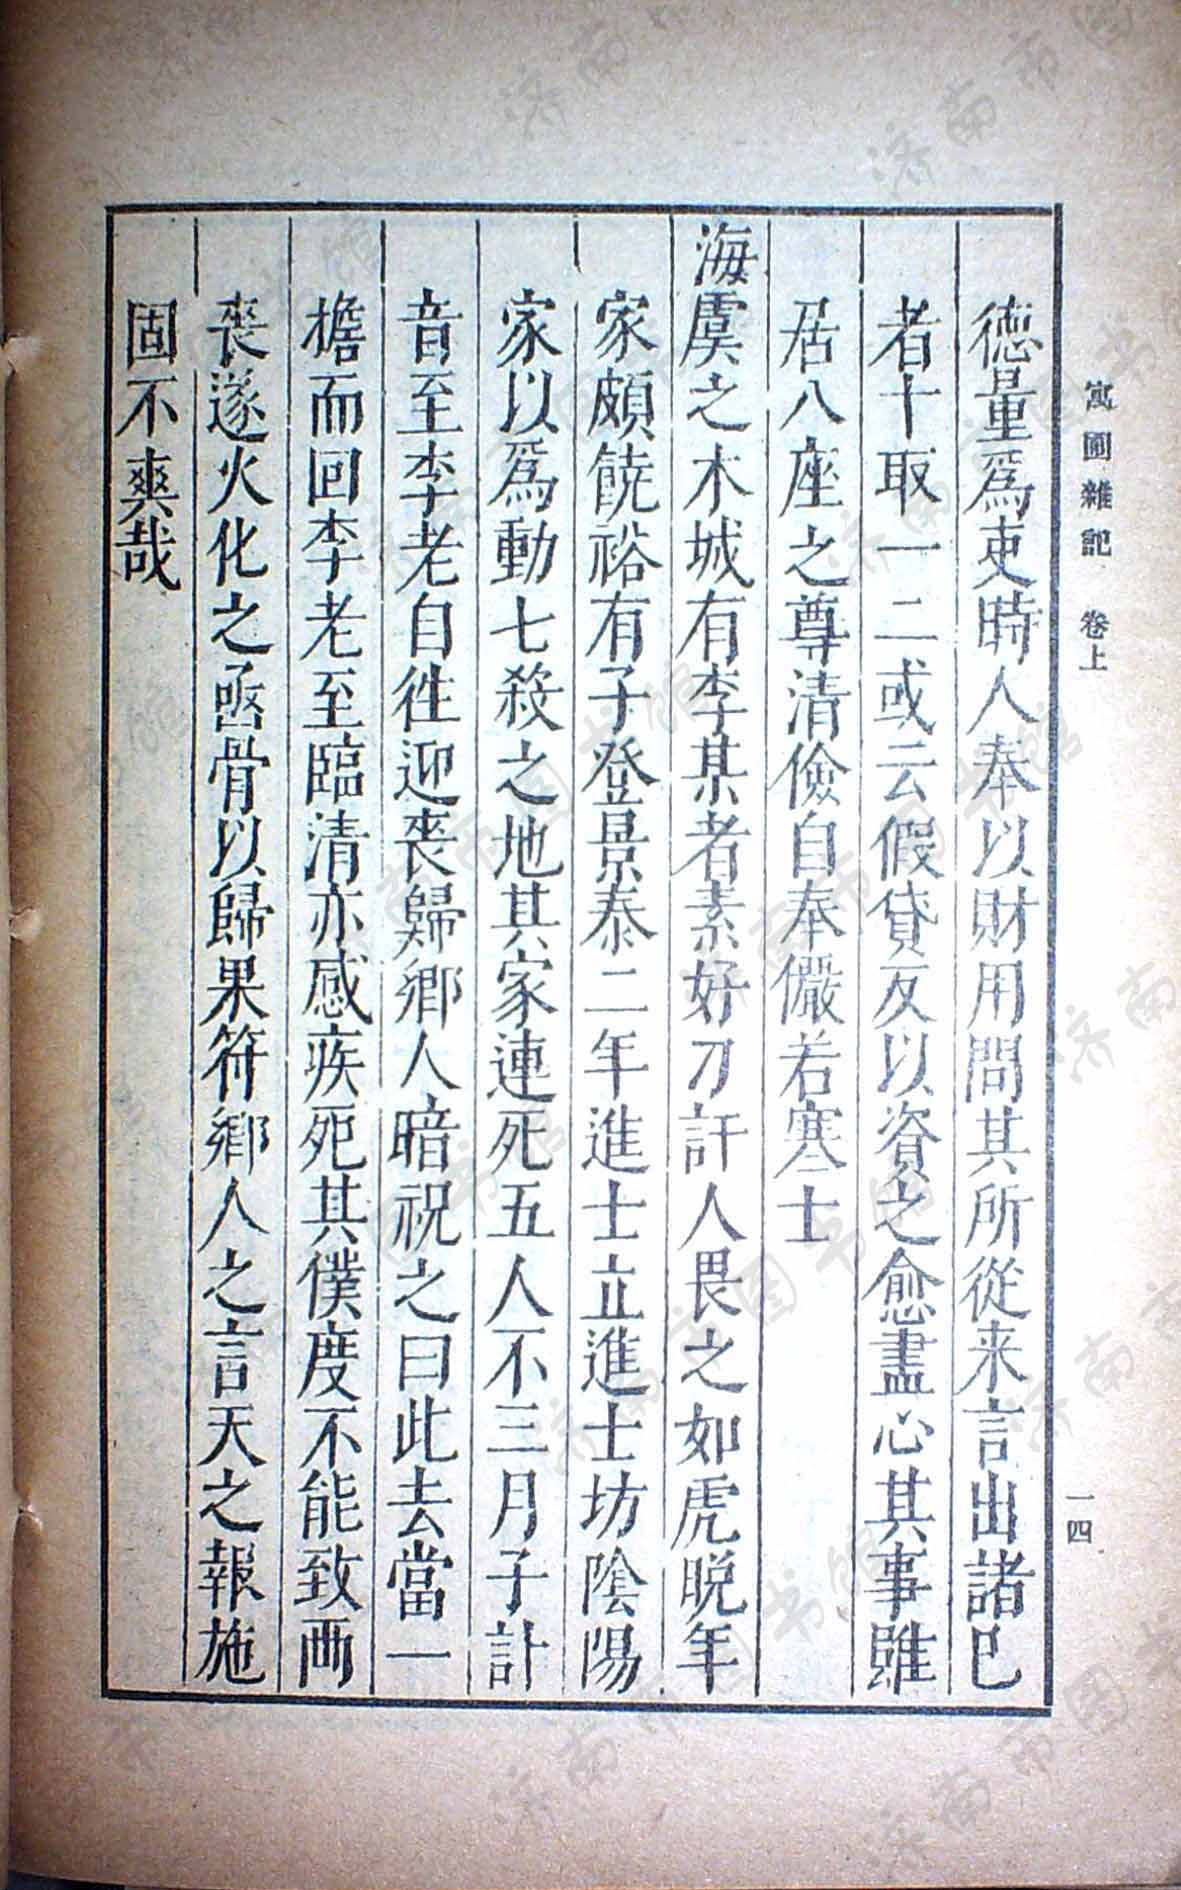 寓圃雜記 卷上 一四
德量爲吏時人奉以財用問其所從来言出諸巳
者十取一二或云假貸反以資之愈盡心其事雖
居八座之尊清儉自奉儼若寒士
海虞之木城有李某者素好刀訐人畏之如虎晚年
家頗饒裕有子登景泰二年進士立進士坊陰陽
家以爲動七殺之地其家連死五人不三月子計
音至李老自徃迎丧歸鄉人暗祝之曰此去當一
檐而回李老至臨清亦感疾死其僕度不能致两
丧遂火化之函骨以歸果符鄉人之言天之報施
固不爽哉
济南市图书馆